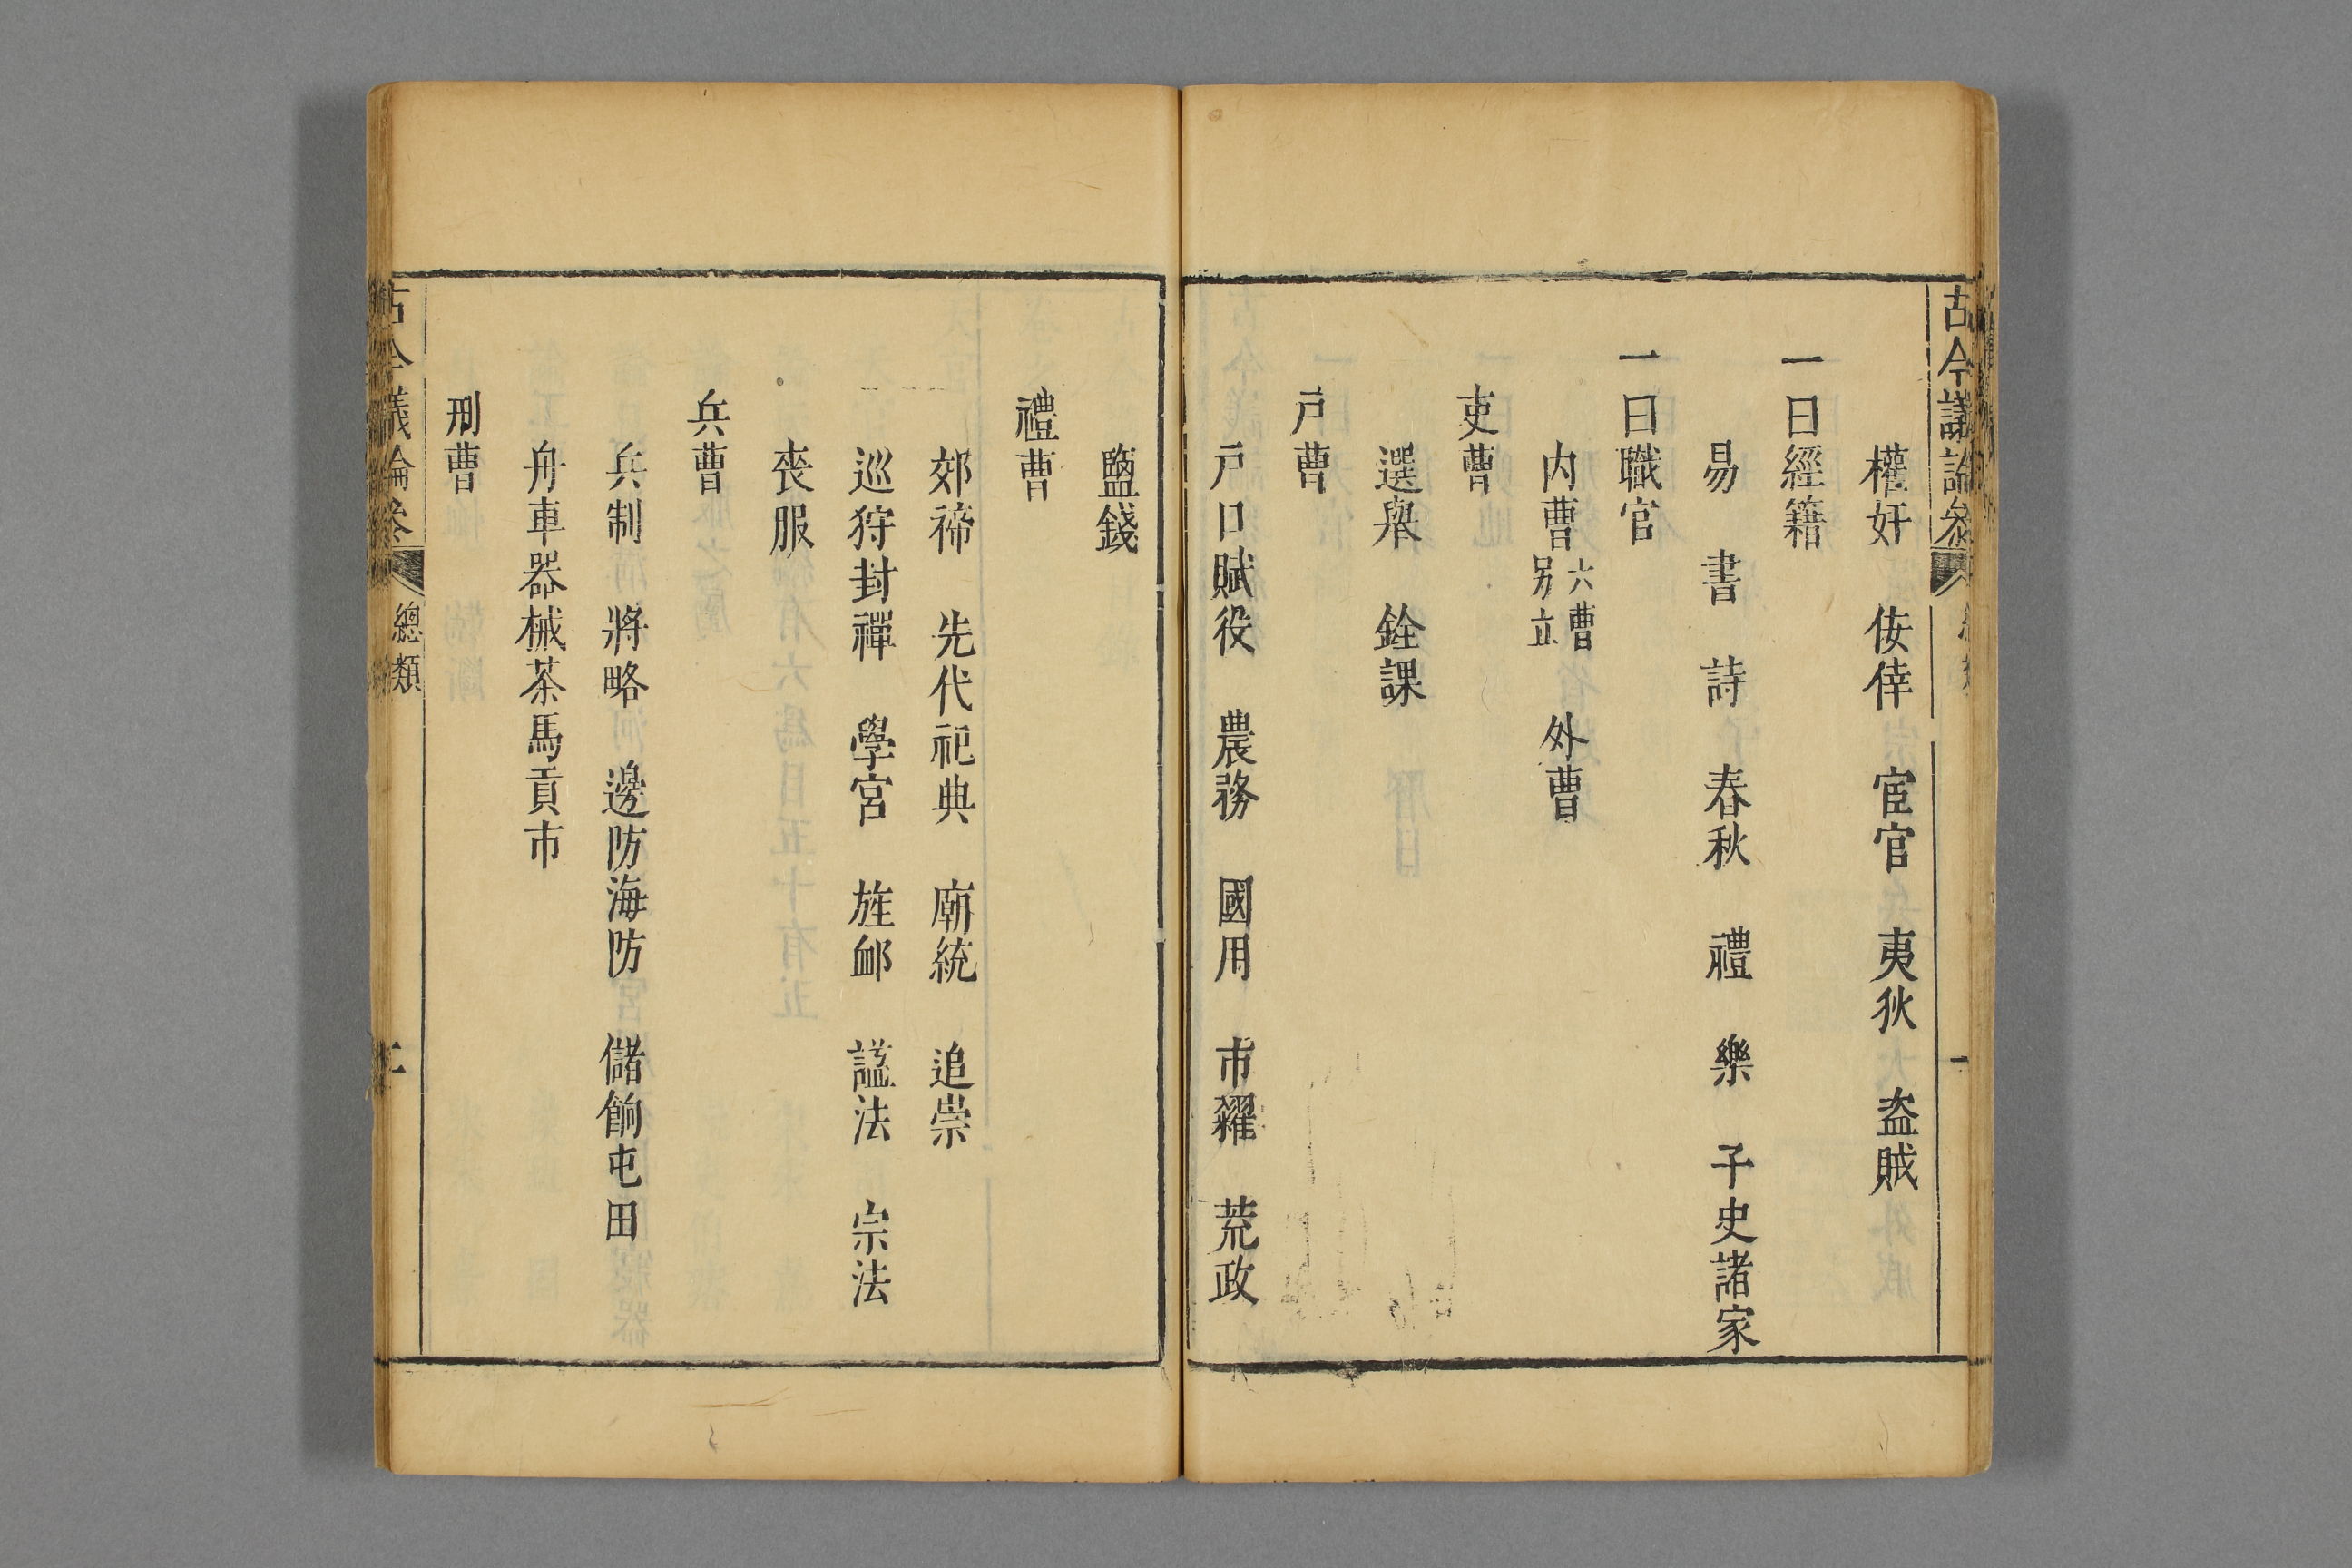 古今議論參 一
權奸 佞倖 宦官 夷狄 盗賊
一曰經籍
易 書 詩 春秋 禮 樂 子史諸家
一曰職官
内曹 六曹另立 外曹
吏曹
選舉 銓課
戸曹
戸口賦役 農務 國用 市糴 荒政
鹽錢
禮曹
郊禘 先代祀典 廟統 追崇
巡狩封禪 學宮 旌䘏 謚法 宗法
喪服
兵曹
兵制 將略 邊防海防 儲餉屯田
舟車器械茶馬貢市
刑曹
古今議論參 總類 二